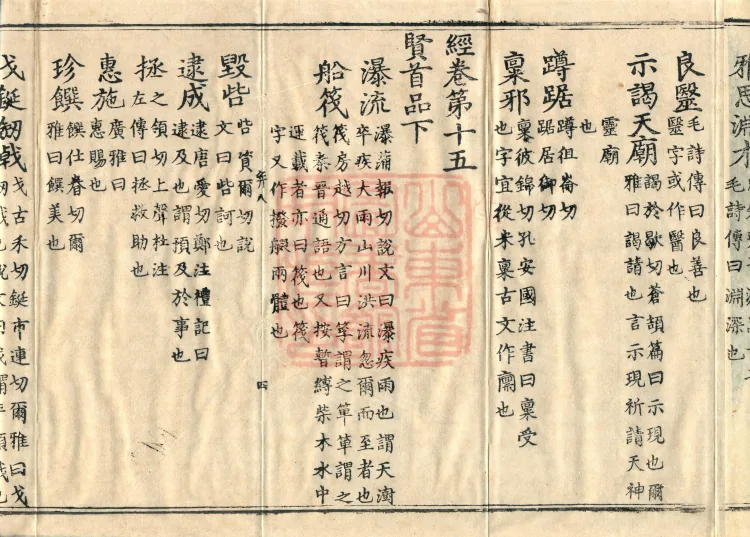 雅思淵才
毛詩傳曰淵深也
良毉毛詩傳曰良善也
毉字或作醫也
示謁天廟謁於歇切蒼頡篇曰示現也爾
雅曰謁請也言示現祈請天神
靈廟
也
蹲踞蹲徂崙切
踞居御切
稟邪稟彼錦切孔安國注書曰稟受
也字宜從米稟古文作廩也
經卷第十五
賢首品下
瀑流瀑蒲報切說文曰瀑疾雨也謂天澍
卒疾大雨山川洪流忽爾而至者也
船筏筏房越切方言曰箄謂之箄箄謂之
筏秦晉通語也又按暫縛柴木水中
運載者亦曰筏也筏
字又作撥橃兩體也
四
毀呰呰資爾切說
文曰呰訶也
逮成逮唐愛切鄭注禮記曰
逮及也謂預及於事也
拯之領切上聲杜注
左傳曰拯救助也
惠施廣雅曰
惠賜也
珍饌饌仕眷切爾
雅曰饌美也
戈鋋劒戟戈古禾切鋋市連切爾雅曰戈